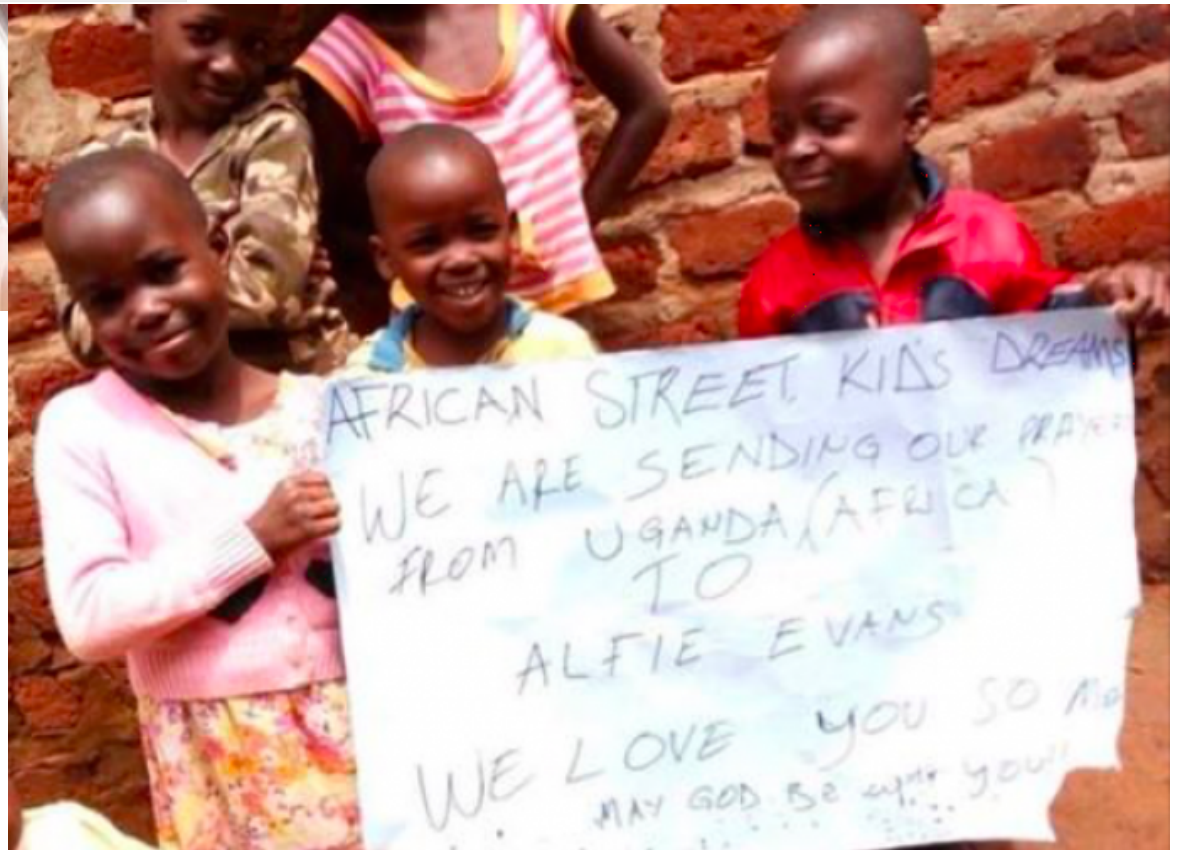 AFRICAN STREET KIDS DREAMS
WE ARE SENDING OUR
FROM UGANDA (AFRICA)
TO
ALFIE EVANS
WE LOVE YOU SO
MAY GOD BE YOU"